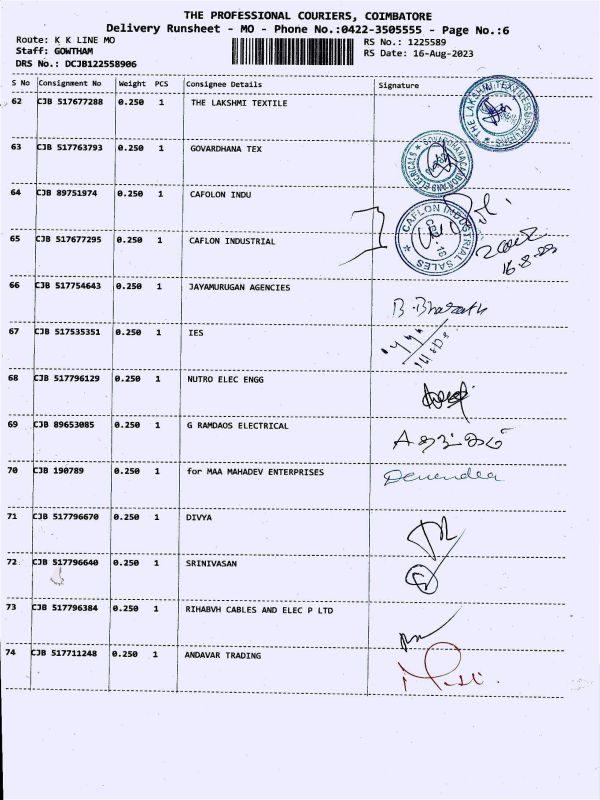 THE PROFESSIONAL COURIERS, COIMBATORE
Delivery Runsheet - MO - Phone No.:0422-3505555 - Page No.:6
Route: K K LINE MO
RS No.: 1225589
Staff: GOWTHAM
RS Date: 16-Aug-2023
DRS No.: DCJB122558906
S No Consignment No Weight PCS Consignee Details Signature
62 CJB 517677288 0.250 1 THE LAKSHMI TEXTILE
63 CJB 517763793 0.250 1 GOVARDHANA TEX
64 CJB 89751974 0.250 1 CAFOLON INDU
65 CJB 517677295 0.250 1 CAFLON INDUSTRIAL
CAFLON INDUSTRIAL SALES
CBE-16
16-8-23
66 CJB 517754643 0.250 1 JAYAMURUGAN AGENCIES B.Bharath
67 CJB 517535351 0.250 1 IES
68 CJB 517796129 0.250 1 NUTRO ELEC ENGG
69 CJB 89653085 0.250 1 G RAMDAOS ELECTRICAL
70 CJB 190789 0.250 1 for MAA MAHADEV ENTERPRISES Devendra
71 CJB 517796670 0.250 1 DIVYA
72 CJB 517796640 0.250 1 SRINIVASAN
73 CJB 517796384 0.250 1 RIHABVH CABLES AND ELEC P LTD
74 CJB 517711248 0.250 1 ANDAVAR TRADING